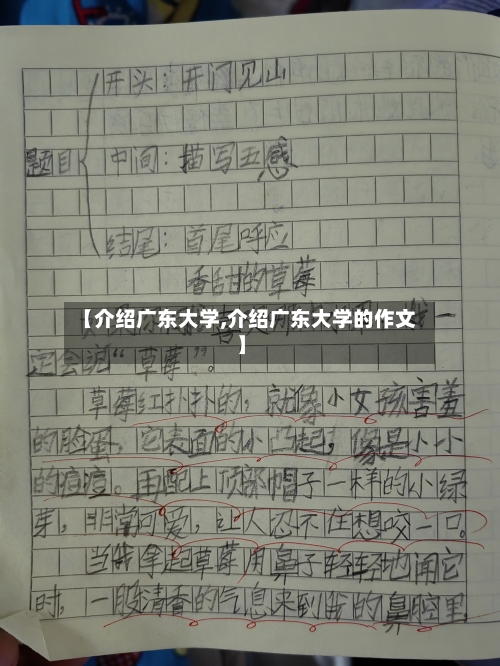 开头：开门见山
题目 中间：描写五感
结尾：首尾呼应
香甜的草莓
【介绍广东大学,介绍广东大学的作文
】
一
定会说“草莓”。
草莓红扑扑的，就像小女孩害羞
的脸蛋，它表面的小凸起，像是小小
的痘痘。再配上顶部帽子一样的小绿
芽，非常可爱，让人忍不住想咬一口。
当我拿起草莓用鼻子轻轻地闻它
时，一股清香的气息来到我的鼻腔里